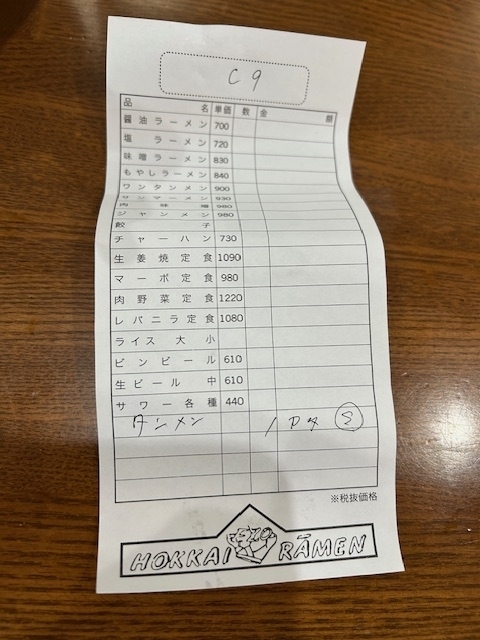 C9
品 名 単価 数 金 額
醤油ラーメン 700
塩 ラーメン 720
味噌ラーメン 830
もやしラーメン 840
ワンタンメン 900
サンマーメン 930
肉 味 噌 980
ジャンメン 980
餃 子
チャーハン 730
生姜焼定食 1090
マーボ定食 980
肉野菜定食 1220
レバニラ定食 1080
ライス 大 小
ビンビール 610
生ビール 中 610
サワー各種 440
タンメン 1
※税抜価格
HOKKAI RAMEN